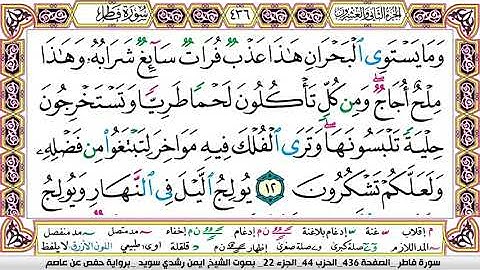 الجزء الثاني والعشرون ٤٣٦ سورة فاطر
وَمَا يَسْتَوِى الْبَحْرَانِ هَٰذَا عَذْبٌ فُرَاتٌ سَآئِغٌ شَرَابُهُۥ وَهَٰذَا
مِلْحٌ أُجَاجٌ ۖ وَمِن كُلٍّ تَأْكُلُونَ لَحْمًا طَرِيًّا وَتَسْتَخْرِجُونَ
حِلْيَةً تَلْبَسُونَهَا ۖ وَتَرَى الْفُلْكَ فِيهِ مَوَاخِرَ لِتَبْتَغُوا مِن فَضْلِهِۦ
وَلَعَلَّكُمْ تَشْكُرُونَ ١٢ يُولِجُ الَّيْلَ فِى النَّهَارِ وَيُولِجُ
م إقلاب غنة إدغام بلاغنة ن م إدغام إخفاء مد متصل مد منفصل
المد اللازم صلة كبرى صلة صغرى إظهار ن م قلقلة اوى طبيعي اللون الأزرق لا يلفظ
سورة فاطر_الصفحة 436_الحزب 44_الجزء 22_بصوت الشيخ ايمن رشدي سويد_برواية حفص عن عاصم